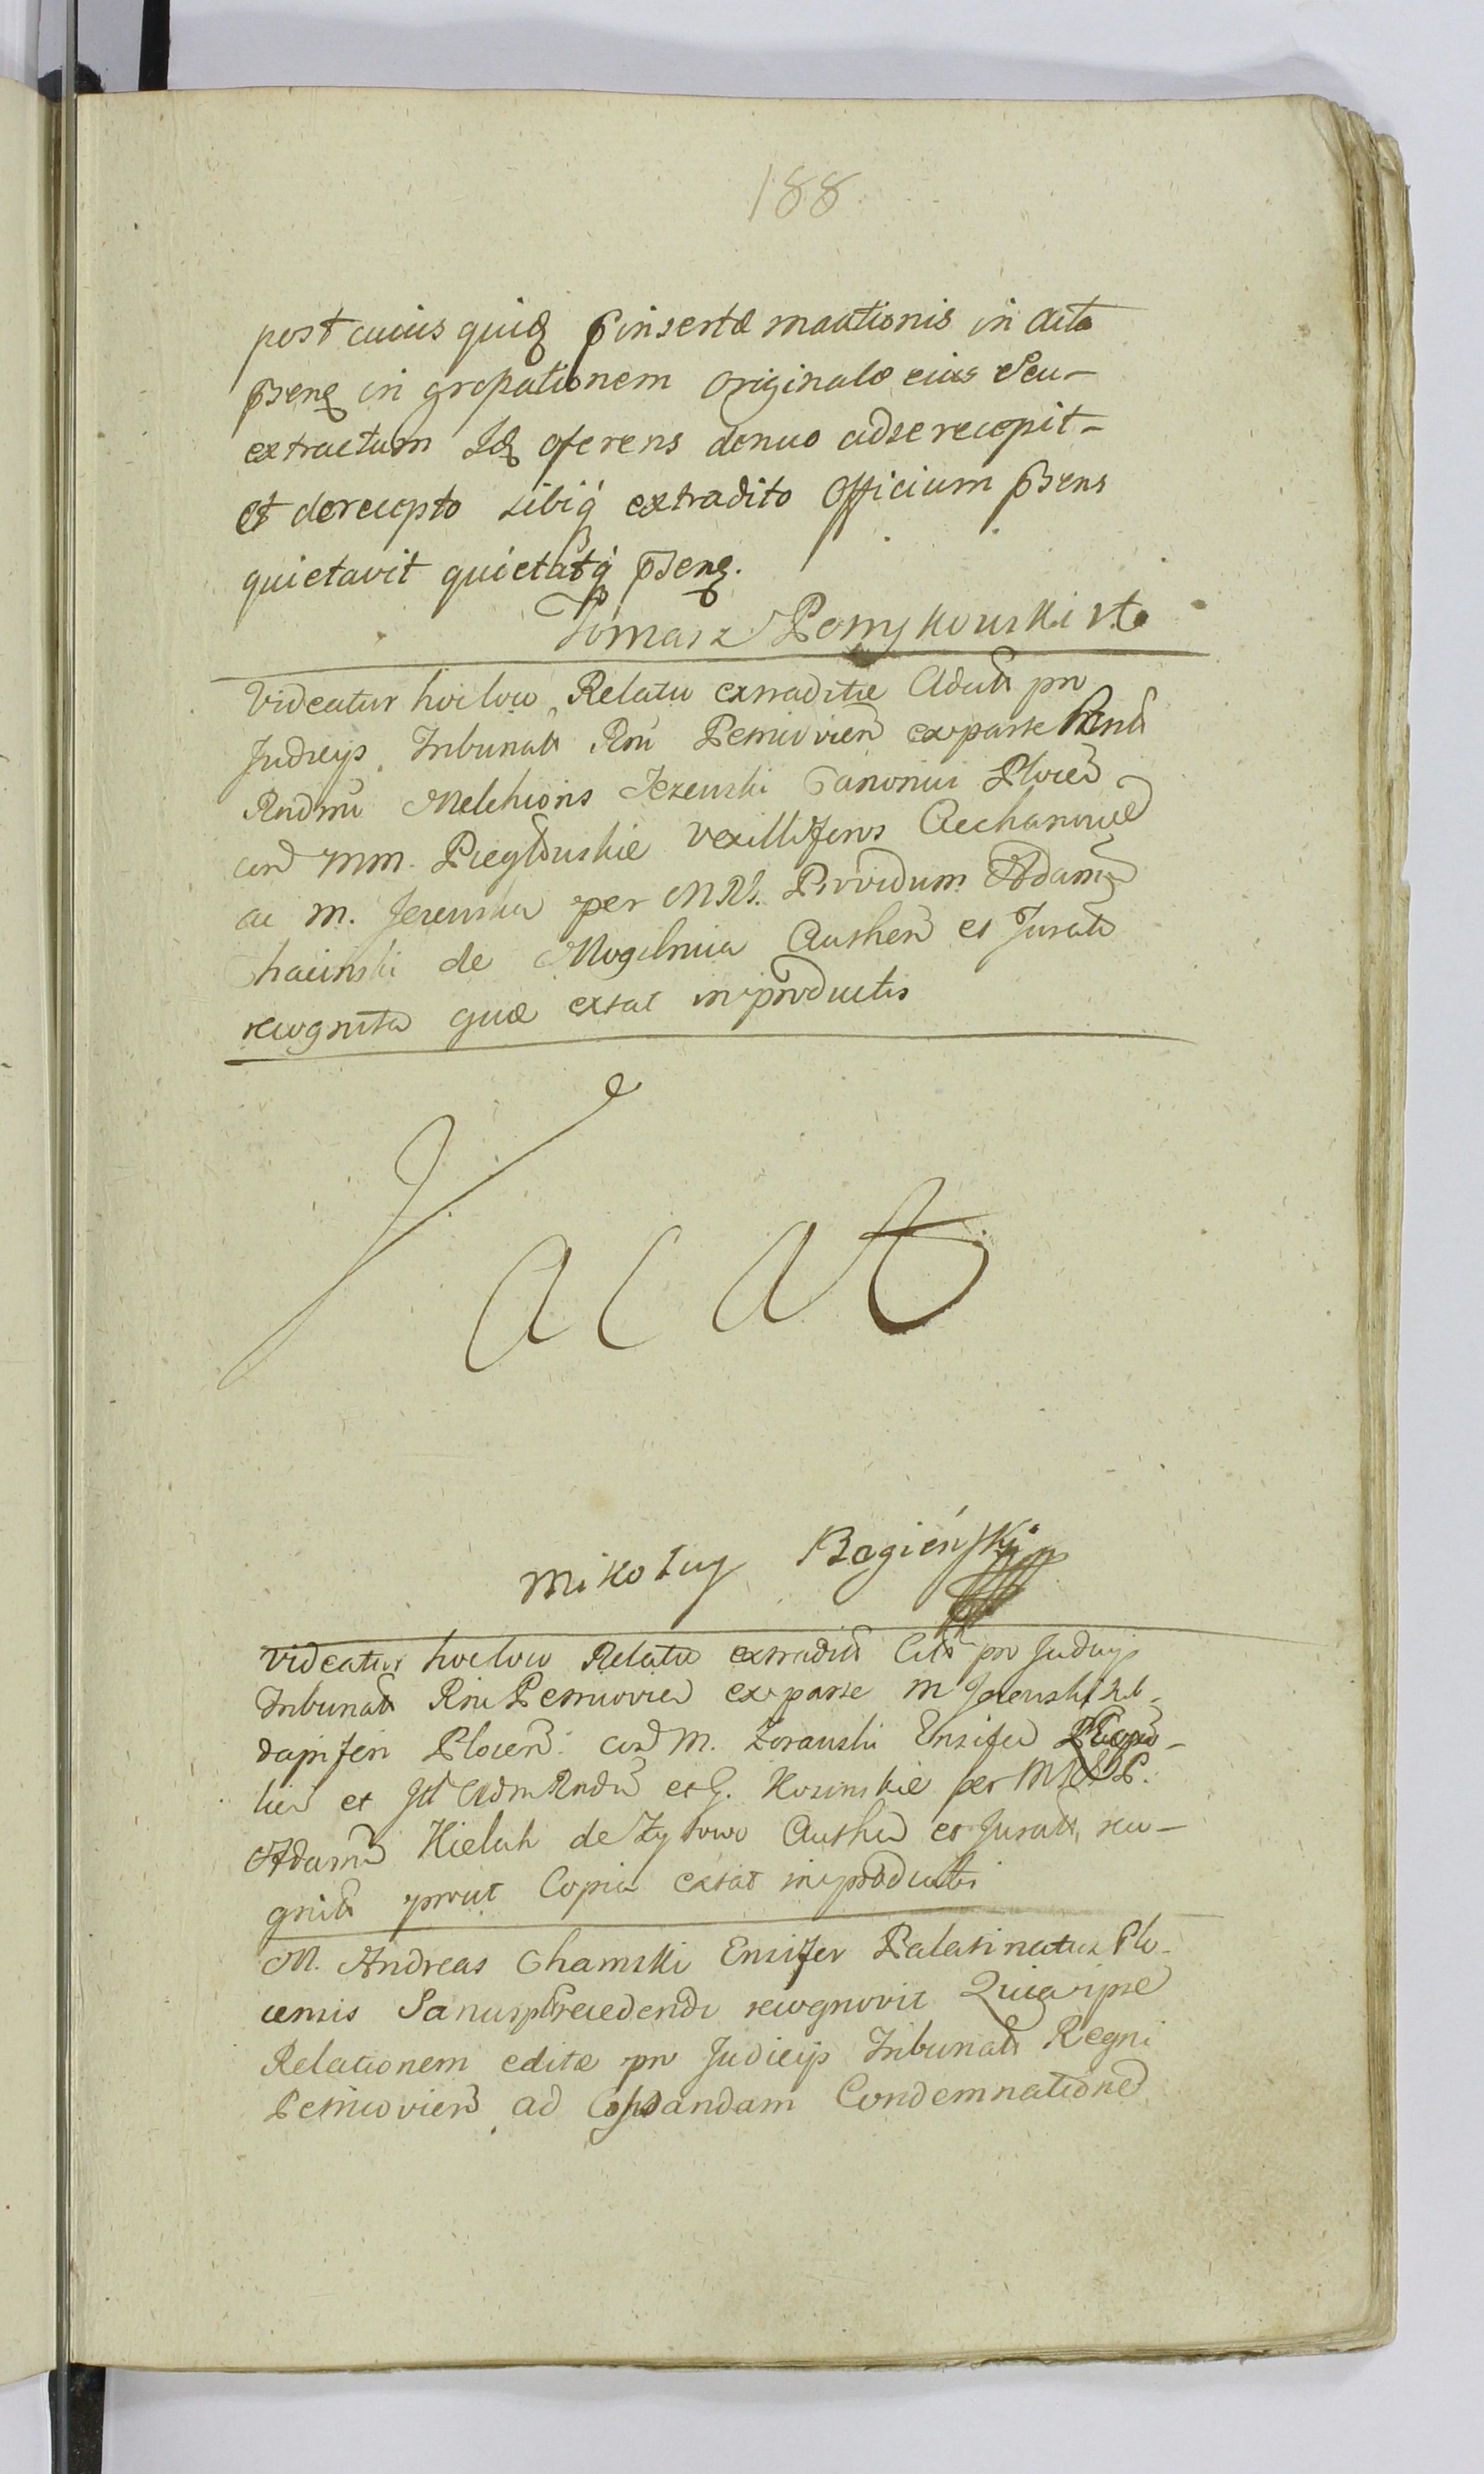 188
post cuius quidē p̄insertæ manutionis in Acta
p̄senē in grosationem originale eius seu-
extractum Idē oferens denuo ad se recepit-
et de recepto sibiq́ extradito Officium p̄sens
quietavit quietatq́ p̄senē.
Tomasz Pomykowski
Videatur hocloco Relatio extraditæ Citatt pro
Judicys Tribunali Rni Petricovien ex parte
Rndmi Melchioris Jezewski Canonici Plocen
con MM. Pieglowskie Vexilliferos Ciechanovien
ac M. Jezewska per MRS. Providum Adamū
Chacinski de Mogilnica Authen et Jurati
recognita quæ extat in productis
Vacat
Mikołay Bagieński
Videatur hocloco Relatio extradit Citt pro Judicijs
Tribunali Rni Petricovien ex parte M Jezewski Sub-
dapiferi Plocen con M. Zorawski Ensifer
lien et Id Adm Rndū et G. Kosinskie per MRS P.
Adamū Kielak de Zytowo Authen et Jurati reco-
gnitt prout Copia extat in productis
M. Andreas Chamski Ensifer Palatinatus Plo-
censis Sanus p̄recedendo recognovit Quia ipse
Relationem editæ pro Judicijs Tribunali Regni
Petricovien ad Cassandam Condemnationē